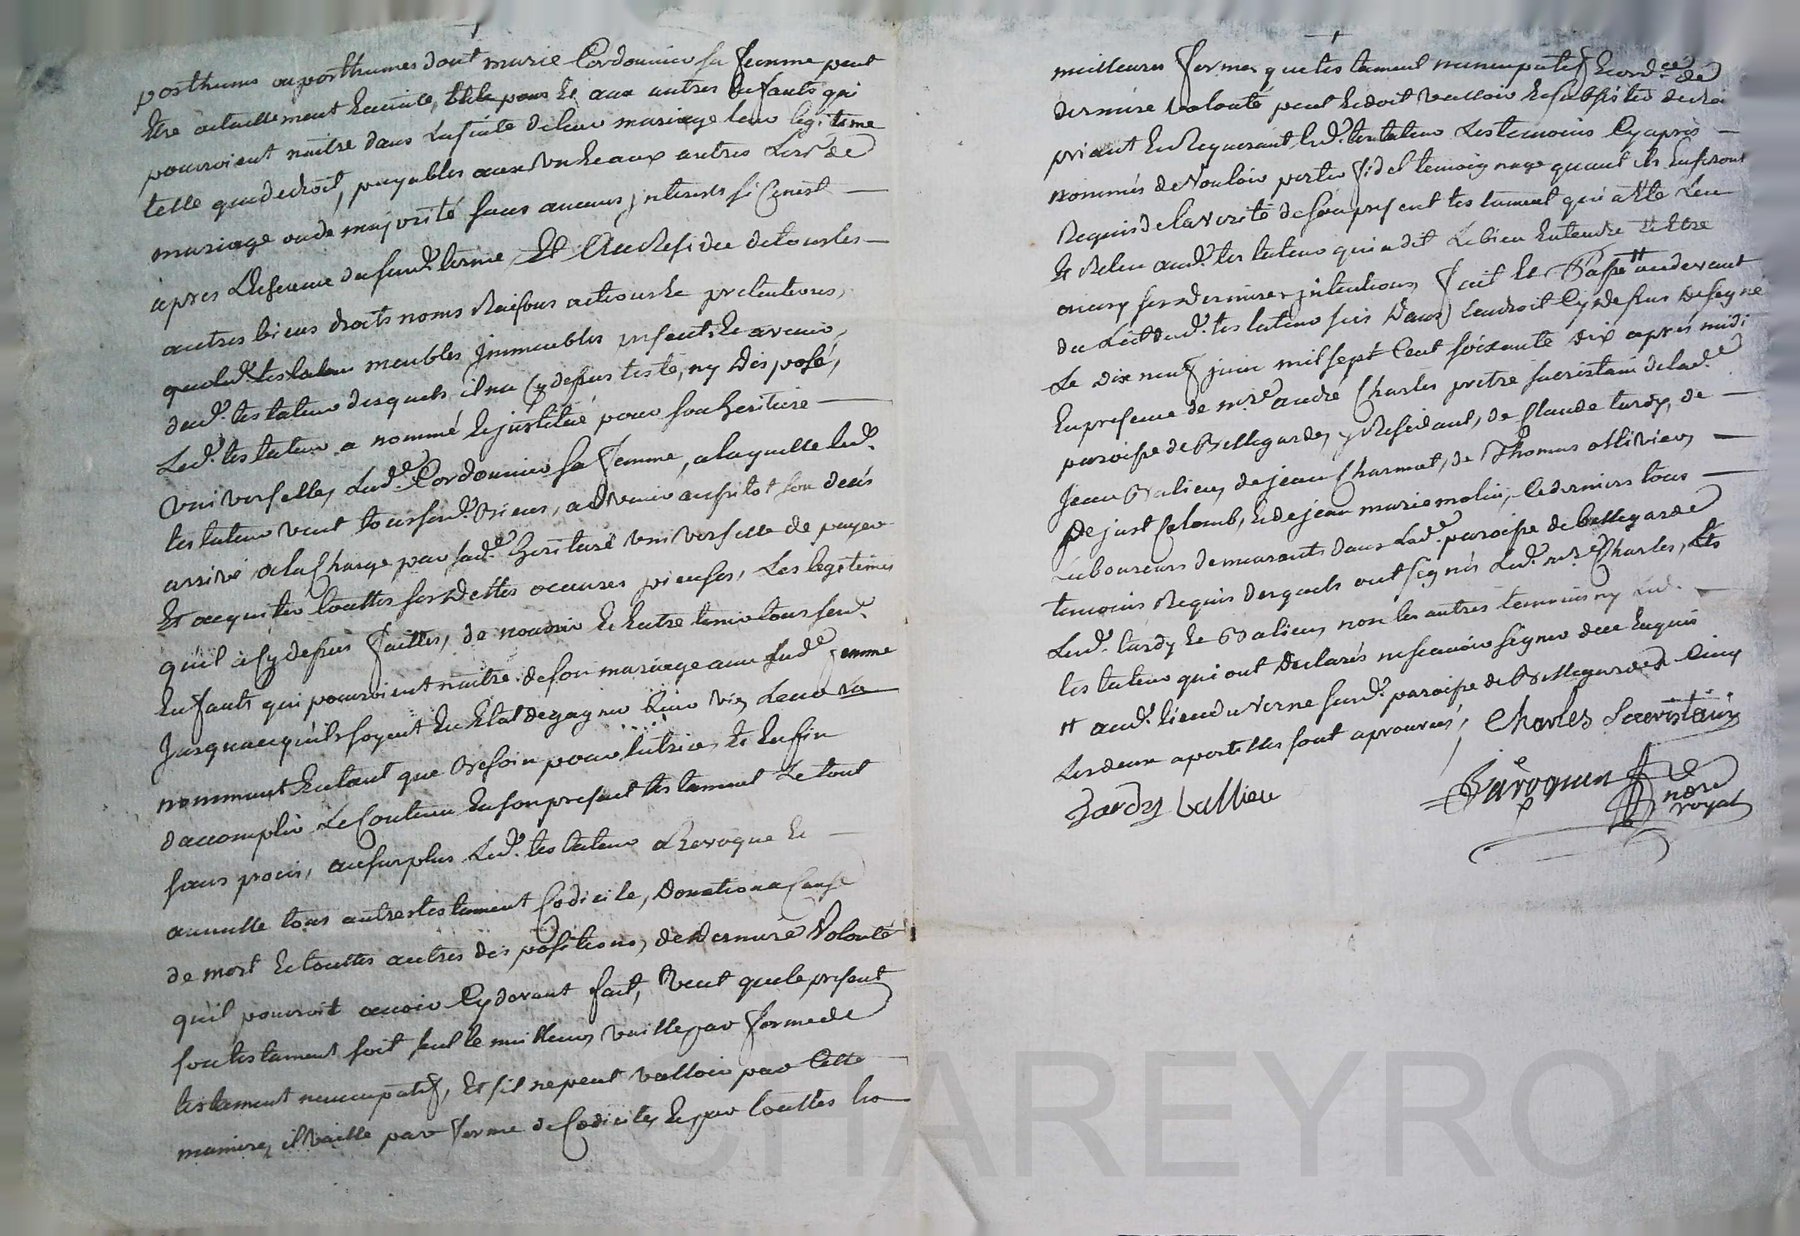 posthume ou posthumes dont marie Cordonnier sa femme peut
Etre actuellement Enceinte, Et aux autres Enfants qui
pourroient naitre dans La suite de leur mariage leur legitime
telle que de droit, payables aux Uns Et aux autres Lors de
mariage ou de majorité sans aucuns jnterests si Ce n'est
apres L'Echeance dususd. terme, Et Au Residu de tous les
autres biens droits noms Raisons actions Et pretentions,
meubles jmmeubles presents Et avenir,
dud. testateur desquels il n'a Cy dessus testé, ny disposé,
Led. testateur a nommé Et justitué pour son heritiere
Universelle, Lad.e Cordonnier sa femme, a laquelle led.
testateur veut tous sesd. Biens, advenir aussitot son deces
arrivé, a la Charge par sad.e heritiere universelle de payer
Et acquiter touttes ses dettes oeuvres pieuses, Les legitimes
qu'il a Cy dessus faittes, de nourrir Et Entretenir tous sesd.
Enfants qui pourroient naitre de son mariage avec sad.e femme
Jusqu'a ce qu'ils soyent En Etat de gagner leur vie, Leur
nommant En tant que Besoin pour tutrice, Et Enfin
d'accomplir Le Contenu En son present testament Le tout
sans proces, au surplus Led. testateur a Revoqué Et
annullé tous autres testament Codicile, Donation a Cause
de mort Et touttes autres dispositions, de derniere Volonté
qu'il pourroit avoir Cy devant fait, Veut que le present
son testament soit seul le meilleur, vaille par forme de
testament nuncupatif, Et s'il ne peut valloir par Cette
maniere, il vaille par forme de Codicile, Et par touttes
meilleures formes que testament nuncupatif Et ord.ce de
derniere volonté peut Et doit valloir Et subsister de droit
priant Et Requerant led. testateur Les temoins Cy apres
nommés de Vouloir porter fidel temoignage quant ils En seront
Requis de la verité de son present testament qui a Eté Leu
Et Releu aud. testateur qui a dit Le bien Entendre Et Etre
ses dernieres jntentions, fait Et Passé # au devant
du Lict dud. testateur sis Dans L'endroit Cy dessus designé
Le dix neuf juin mil sept Cent soixante dix apres midi
En presence de m.re andré Charles pretre sacristain de lad.e
paroisse de Bellegarde, y Residant, de Claude tardy, de
Jean Balieu, de jean Charmat, de Thomas ollivier,
De just Colomb, Et de jean marie molin, Ces derniers tous
Laboureurs demeurants dans Lad.e paroisse de bellegarde
temoins Requis desquels ont signés Led. m.re Charles, Et
Led. tardy Et Balieu, non les autres temoins ny Led.
testateur qui ont Declarés ne scavoir signer de ce Enquis
# aud. lieu du Verne susd. paroisse de Bellegarde
Les deux apostilles sont aprouvées, Charles Sacristain
Tardy ballieu
nore
royal
CHAREYRON